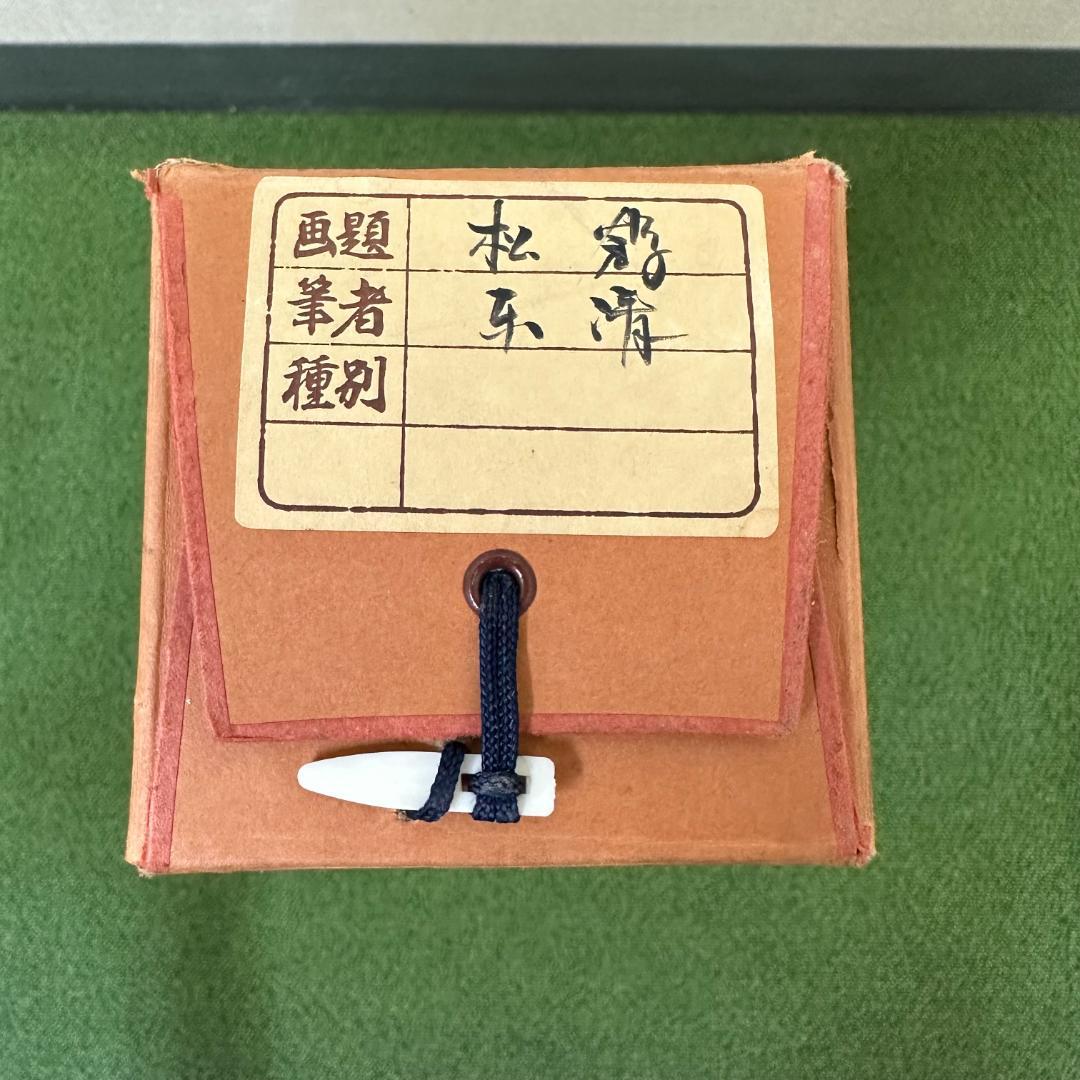 画題 松 鶴
筆者 清
種別